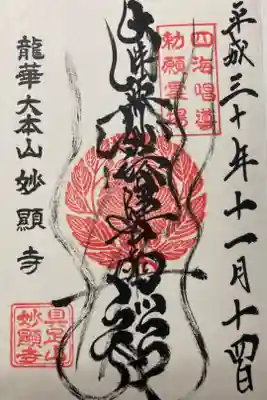 平成三十年十一月十四日
四海唱導
勅願霊場
龍華大本山妙顯寺
具足山
妙顯寺